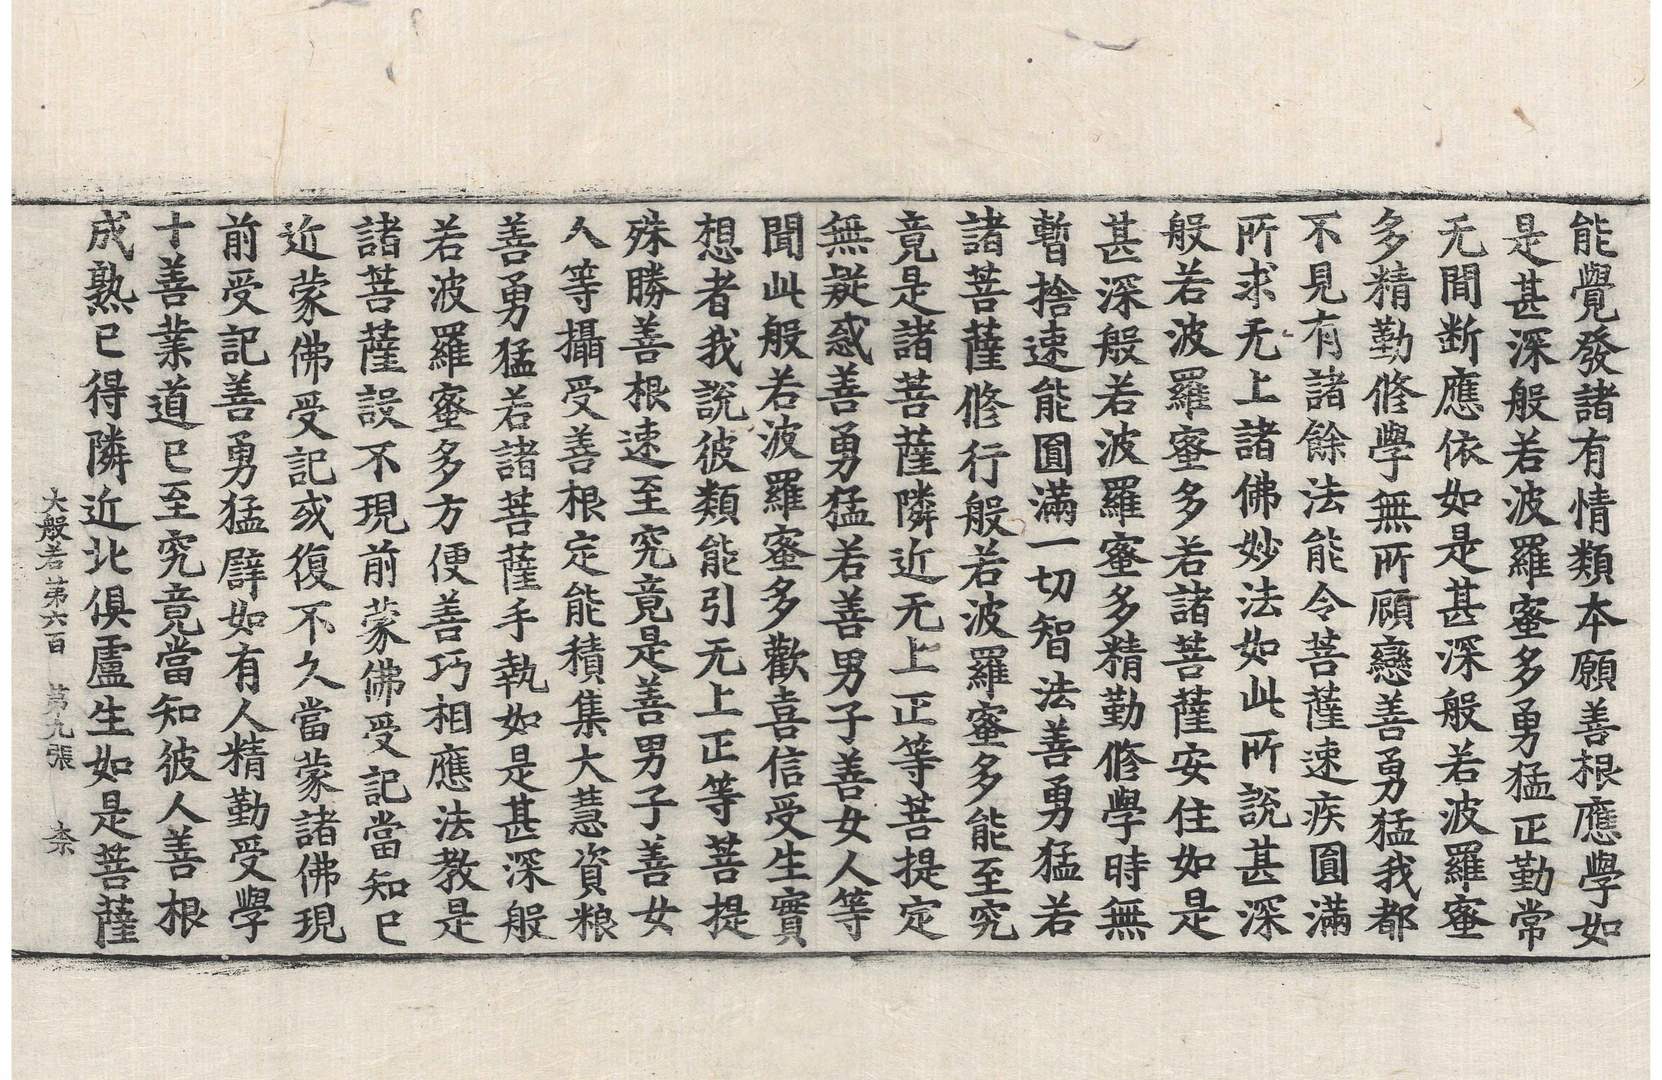 能覺發諸有情類本願善根應學如
是甚深般若波羅蜜多勇猛正勤常
无間断應依如是甚深般若波羅蜜
多精勤修學無所顧戀善勇猛我都
不見有諸餘法能令菩薩速疾圓滿
所求无上諸佛妙法如此所說甚深
般若波羅蜜多若諸菩薩安住如是
甚深般若波羅蜜多精勤修學時無
暫捨速能圓滿一切智法善勇猛若
諸菩薩修行般若波羅蜜多能至究
竟是諸菩薩隣近无上正等菩提定
無疑惑善勇猛若善男子善女人等
聞此般若波羅蜜多歡喜信受生實
想者我說彼類能引无上正等菩提
殊勝善根速至究竟是善男子善女
人等攝受善根定能積集大慧資粮
善勇猛若諸菩薩手執如是甚深般
若波羅蜜多方便善巧相應法教是
諸菩薩設不現前蒙佛受記當知已
近蒙佛受記或復不久當蒙諸佛現
前受記善勇猛譬如有人精勤受學
十善業道已至究竟當知彼人善根
成熟已得隣近北俱盧生如是菩薩
大般若第六百 第九張 柰